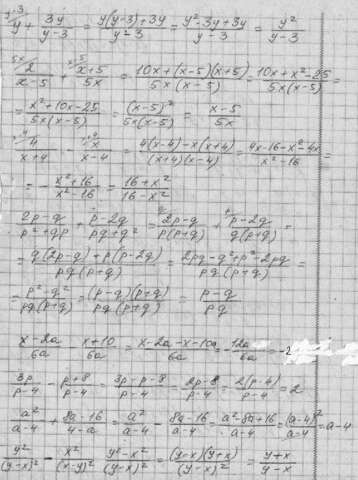 y + 3y/(y-3) = (y(y-3)+3y)/(y-3) = (y²-3y+3y)/(y-3) = y²/(y-3)
2/(x-5) + (x+5)/5x = (10x+(x-5)(x+5))/(5x(x-5)) = (10x+x²-25)/(5x(x-5)) =
= (x²+10x-25)/(5x(x-5)) = (x-5)²/(5x(x-5)) = (x-5)/5x
4/(x+4) - x/(x-4) = (4(x-4)-x(x+4))/((x+4)(x-4)) = (4x-16-x²-4x)/(x²-16) =
= - (x²+16)/(x²-16) = (16+x²)/(16-x²)
(2p-q)/(p²+qp) + (p-2q)/(pq+q²) = (2p-q)/(p(p+q)) + (p-2q)/(q(p+q)) =
= (q(2p-q)+p(p-2q))/(pq(p+q)) = (2pq-q²+p²-2pq)/(pq(p+q)) =
= (p²-q²)/(pq(p+q)) = ((p-q)(p+q))/(pq(p+q)) = (p-q)/pq
(x-2a)/6a - (x+10)/6a = (x-2a-x-10a)/6a = -12a/6a = -2
3p/(p-4) - (p+8)/(p-4) = (3p-p-8)/(p-4) = (2p-8)/(p-4) = 2(p-4)/(p-4) = 2
a²/(a-4) + (8a-16)/(4-a) = a²/(a-4) - (8a-16)/(a-4) = (a²-8a+16)/(a-4) = (a-4)²/(a-4) = a-4
y²/(y-x)² - x²/(x-y)² = (y²-x²)/(y-x)² = ((y-x)(y+x))/(y-x)² = (y+x)/(y-x)